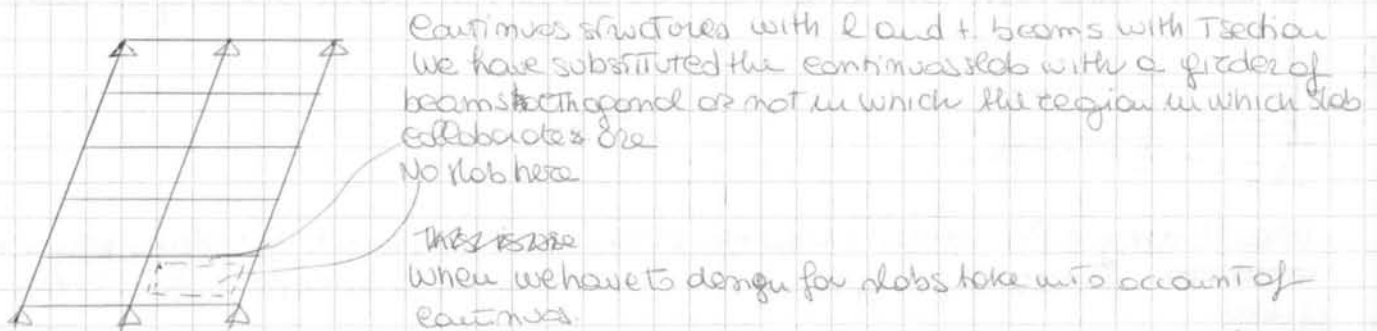 Continuos structures with l and t. beams with T section
We have substituted the continuos slab with a girder of
beams orthogonal or not in which the region in which slab
collaborates are
No slab here
When we have to design for slabs take into account of
continuos.